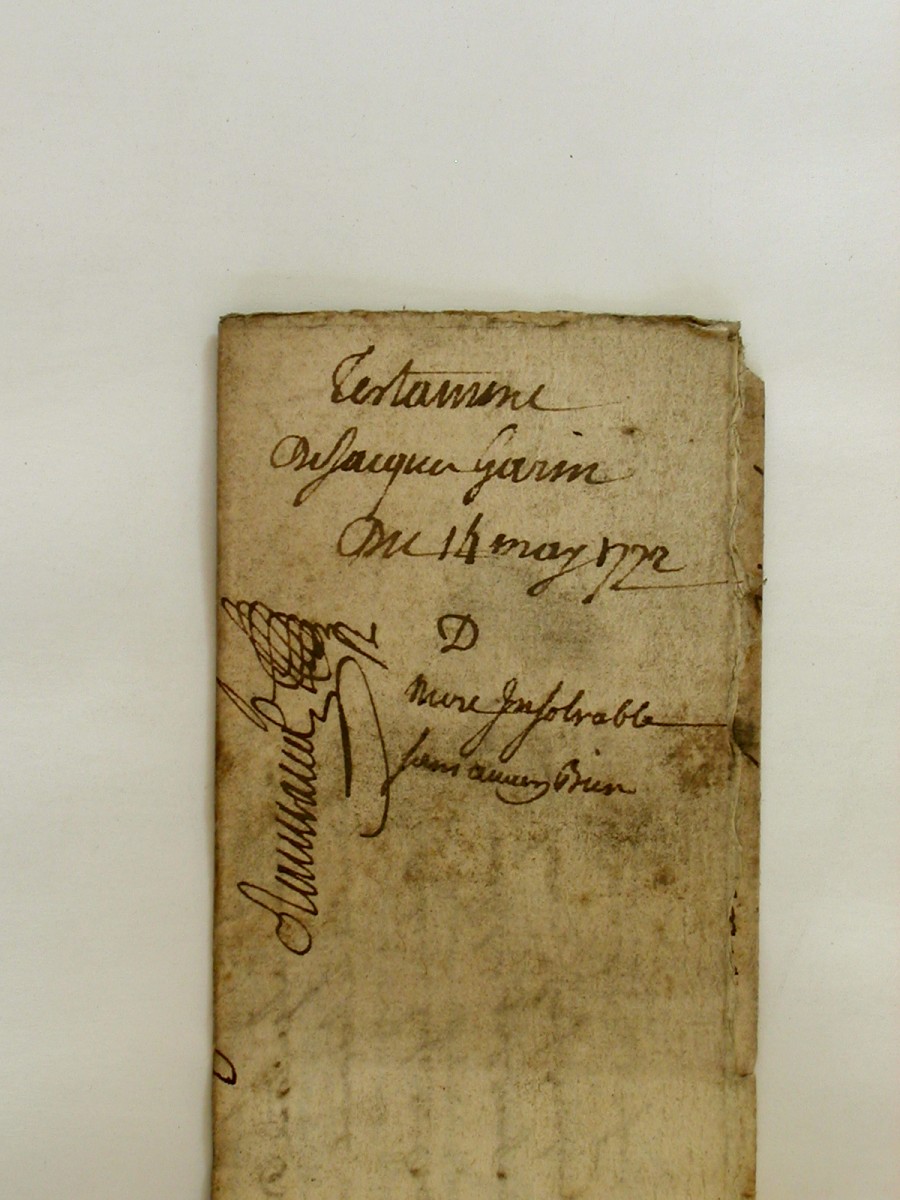 Testament
De Jacques Garin
Du 14 may 1772
D
mort Insolvable
sans aucun Bien